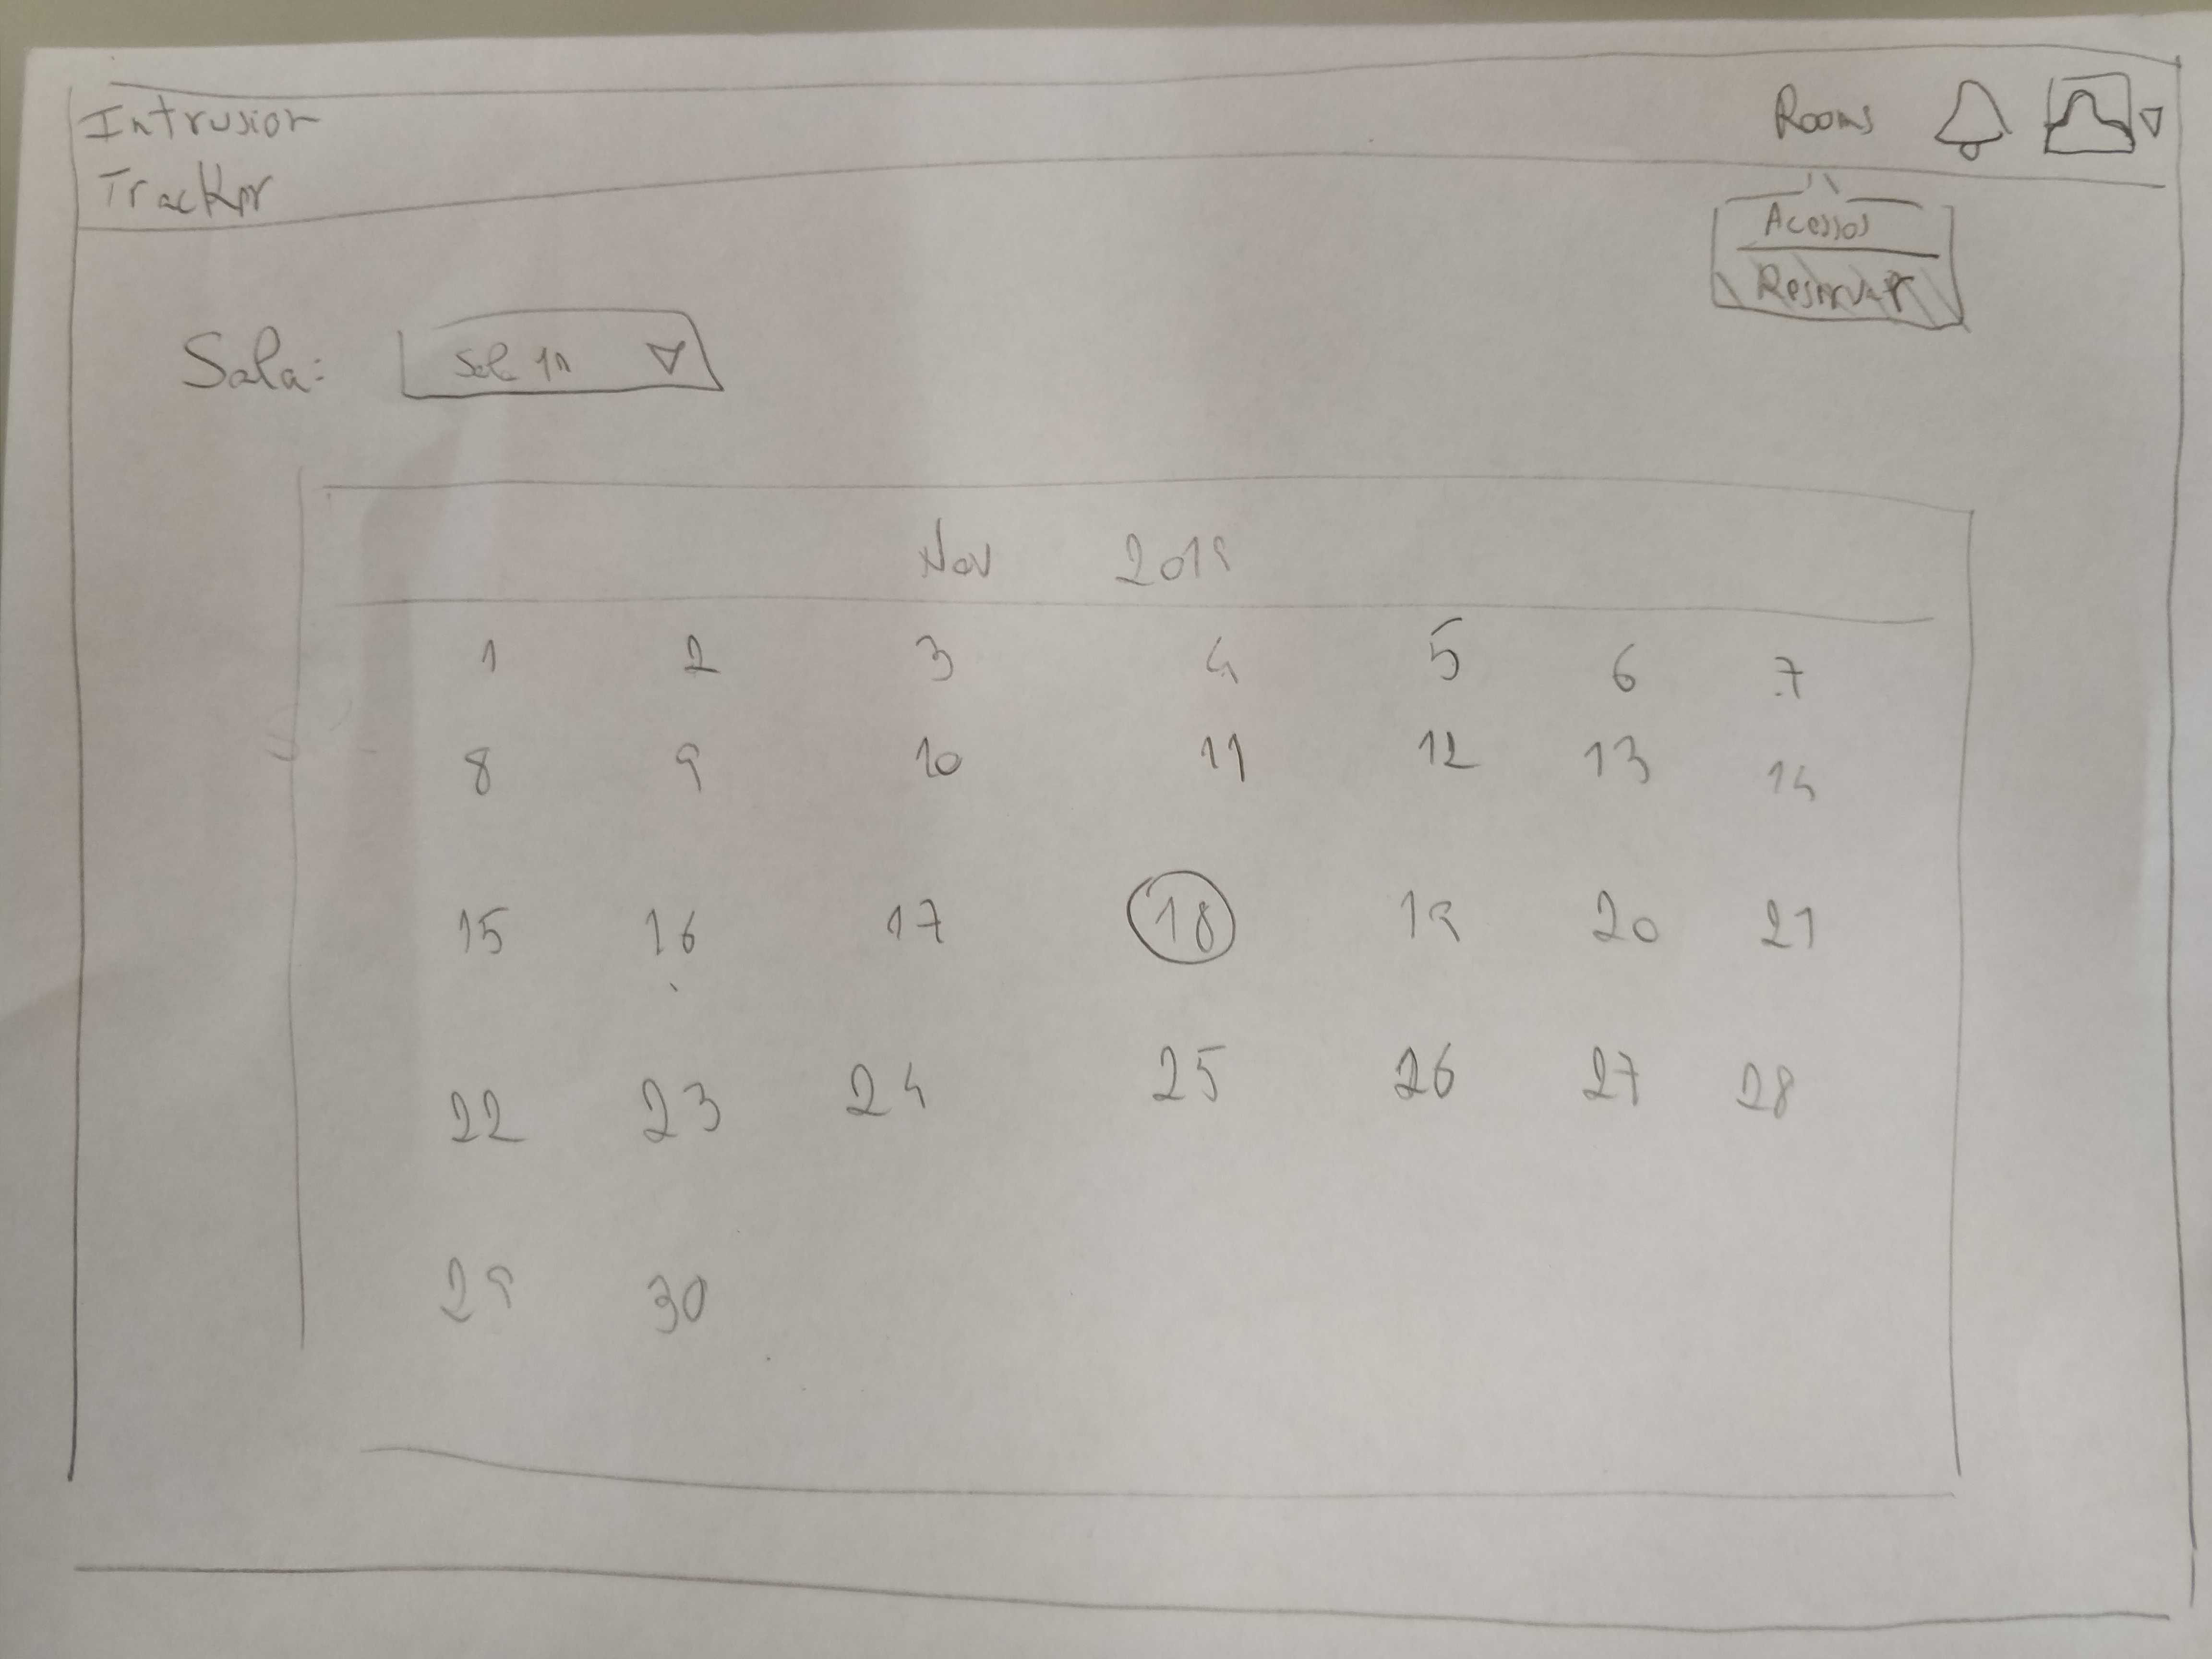 Intrusion
Tracker
Rooms
Acessos
Reservar
Sala:
Nov 2019
1 2 3 4 5 6 7
8 9 10 11 12 13 14
15 16 17 18 19 20 21
22 23 24 25 26 27 28
29 30